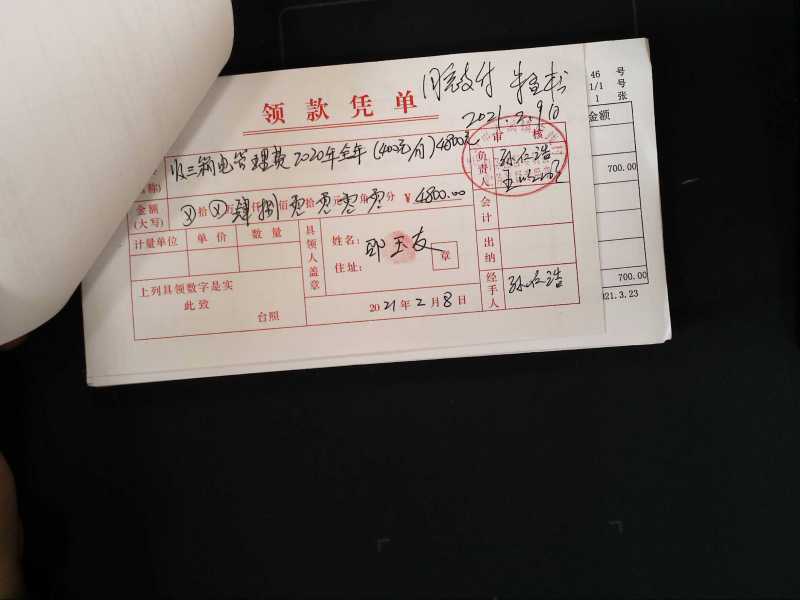 同意支付
2021.2.9日
领款凭单
收三箱电管理费2020年全年(400元/月)4800元
审核
金额
(大写)
拾 万 肆仟捌佰零拾零元零角零分 ¥4800.00
负责人
孙仁浩
会计
计量单位 单价 数量
具领人盖章
姓名: 邱玉友
住址:
章
出纳
上列具领数字是实
此致
台照
2021年2月8日
经手人
孙仁浩
46 号
1/1 号
1 张
金额
700.00
700.00
021.3.23